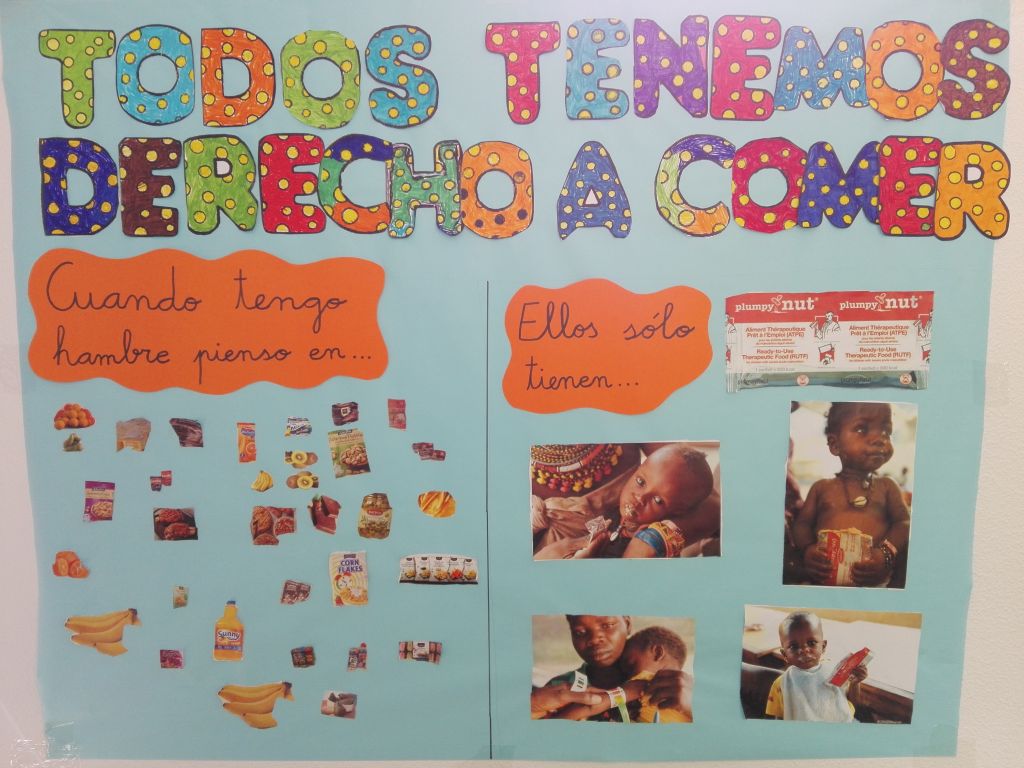 TODOS TENEMOS
DERECHO A COMER
Cuando tengo
hambre pienso en...
Ellos sólo
tienen...
plumpy'nut® plumpy'nut®
Aliment Thérapeutique
Prêt à l'Emploi (ATPE)
Ready-to-Use
Therapeutic Food (RUTF)
Aliment Thérapeutique
Prêt à l'Emploi (ATPE)
Ready-to-Use
Therapeutic Food (RUTF)
CORN
FLAKES
Sunny